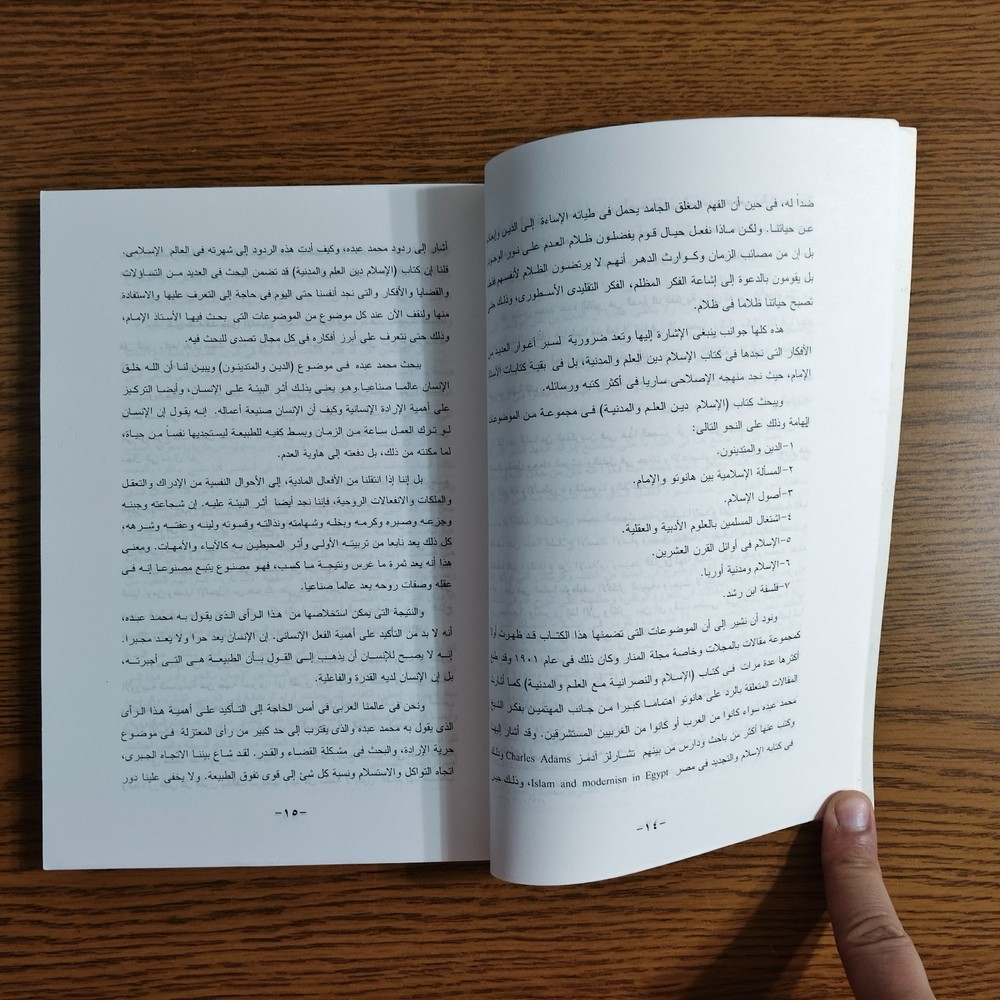 ضداً له، فى حين أن الفهم المغلق الجامد يحمل فى طياته الإساءة إلى الدين
عن حياتنا. ولكن ماذا نفعل حيال قوم يفضلون ظلام العدم على نور الوجود
بل إن من مصائب الزمان وكوارث الدهر أنهم لا يرتضون الظلام لأنفسهم
بل يقومون بالدعوة إلى إشاعة الفكر المظلم، الفكر التقليدى الأسطورى، وذلك حتى
تصبح حياتنا ظلاما فى ظلام.
هذه كلها جوانب ينبغى الإشارة إليها وتعد ضرورية لسبر أغوار العديد من
الأفكار التى نجدها فى كتاب الإسلام دين العلم والمدنية، بل فى بقية كتابات
الإمام، حيث نجد منهجه الإصلاحى ساريا فى أكثر كتبه ورسائله.
ويبحث كتاب (الإسلام دين العلم والمدنية) فى مجموعة من الموضوعات
الهامة وذلك على النحو التالى:
١-الدين والمتدينون.
٢-المسألة الإسلامية بين هانوتو والإمام.
٣-أصول الإسلام.
٤-اشتغال المسلمين بالعلوم الأدبية والعقلية.
٥-الإسلام فى أوائل القرن العشرين.
٦-الإسلام ومدنية أوربا.
٧-فلسفة ابن رشد.
ونود أن نشير إلى أن الموضوعات التى تضمنها هذا الكتاب قد ظهرت
كمجموعة مقالات بالمجلات وخاصة مجلة المنار وكان ذلك فى عام ١٩٠١ وقد طبع
أكثرها عدة مرات فى كتاب (الإسلام والنصرانية مع العلم والمدنية) كما أثارت
المقالات المتعلقة بالرد على هانوتو اهتماما كبيرا من جانب المهتمين بفكر الشيخ
محمد عبده سواء كانوا من العرب أو كانوا من الغربيين المستشرقين. وقد أشار إليها
وكتب عنها أكثر من باحث ودارس من بينهم تشارلز آدمز Charles Adams وذلك
فى كتابه الإسلام والتجديد فى مصر Islam and modernisn in Egypt، وذلك حين
-١٤-
أشار إلى ردود محمد عبده، وكيف أدت هذه الردود إلى شهرته فى العالم الإسلامى.
قلنا إن كتاب (الإسلام دين العلم والمدنية) قد تضمن البحث فى العديد من التساؤلات
والقضايا والأفكار والتى نجد أنفسنا حتى اليوم فى حاجة إلى التعرف عليها والاستفادة
منها ولنقف الآن عند كل موضوع من الموضوعات التى بحث فيها الأستاذ الإمام،
وذلك حتى نتعرف على أبرز أفكاره فى كل مجال تصدى للبحث فيه.
يبحث محمد عبده فى موضوع (الدين والمتدينون) ويبين لنا أن الله خلق
الإنسان عالما صناعيا.وهو يعنى بذلك أثر البيئة على الإنسان، وأيضا التركيز
على أهمية الإرادة الإنسانية وكيف أن الإنسان صنيعة أعماله. إنه يقول إن الإنسان
لو ترك العمل ساعة من الزمان وبسط كفيه للطبيعة ليستجديها نفساً من حياة،
لما مكنته من ذلك، بل دفعته إلى هاوية العدم.
بل إننا إذا انتقلنا من الأفعال المادية، إلى الأحوال النفسية من الإدراك والتعقل
والملكات والانفعالات الروحية، فإننا نجد أيضا أثر البيئة عليه. إن شجاعته وجبنه
وجزعه وصبره وكرمه وبخله وشهامته ونذالته وقسوته ولينه وعفته وشرهه،
كل ذلك يعد نابعا من تربيته الأولى وأثر المحيطين به كالآباء والأمهات. ومعنى
هذا أنه يعد ثمرة ما غرس ونتيجة ما كسب، فهو مصنوع يتبع مصنوعا إنه فى
عقله وصفات روحه يعد عالما صناعيا.
والنتيجة التى يمكن استخلاصها من هذا الرأى الذى يقول به محمد عبده،
أنه لا بد من التأكيد على أهمية الفعل الإنسانى. إن الإنسان يعد حرا ولا يعد مجبرا.
إنه لا يصح للإنسان أن يذهب إلى القول بأن الطبيعة هى التى أجبرته،
بل إن الإنسان لديه القدرة والفاعلية.
ونحن فى عالمنا العربى فى أمس الحاجة إلى التأكيد على أهمية هذا الرأى
الذى يقول به محمد عبده والذى يقترب إلى حد كبير من رأى المعتزلة فى موضوع
حرية الإرادة، والبحث فى مشكلة القضاء والقدر. لقد شاع بيننا الاتجاه الجبرى،
اتجاه التواكل والاستسلام ونسبة كل شئ إلى قوى تفوق الطبيعة. ولا يخفى علينا دور
-١٥-